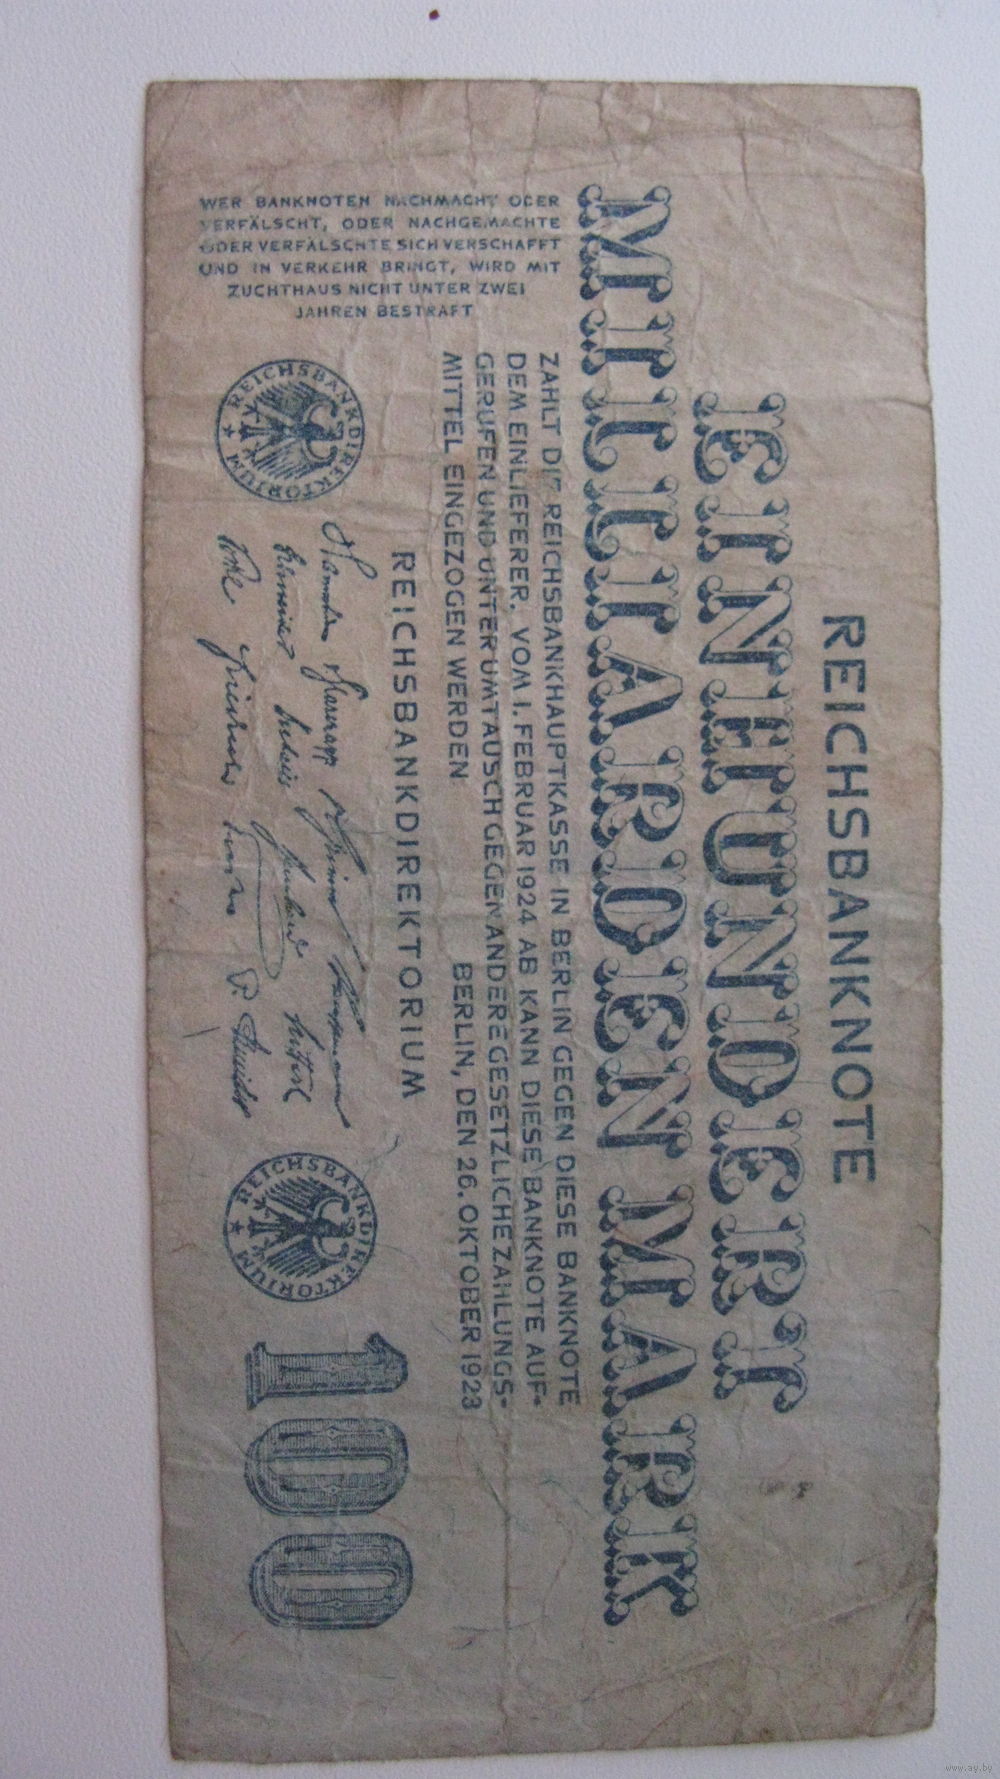 REICHSBANKNOTE
EINHUNDERT
MILLIARDEN MARK
ZAHLT DIE REICHSBANKHAUPTKASSE IN BERLIN GEGEN DIESE BANKNOTE
DEM EINLIEFERER. VOM 1. FEBRUAR 1924 AB KANN DIESE BANKNOTE AUF-
GERUFEN UND UNTER UMTAUSCH GEGEN ANDERE GESETZLICHE ZAHLUNGS-
MITTEL EINGEZOGEN WERDEN
BERLIN, DEN 26. OKTOBER 1923
REICHSBANKDIREKTORIUM
REICHSBANKDIREKTORIUM
REICHSBANKDIREKTORIUM
100
WER BANKNOTEN NACHMACHT ODER
VERFÄLSCHT, ODER NACHGEMACHTE
ODER VERFÄLSCHTE SICH VERSCHAFFT
UND IN VERKEHR BRINGT, WIRD MIT
ZUCHTHAUS NICHT UNTER ZWEI
JAHREN BESTRAFT
www.ay.by